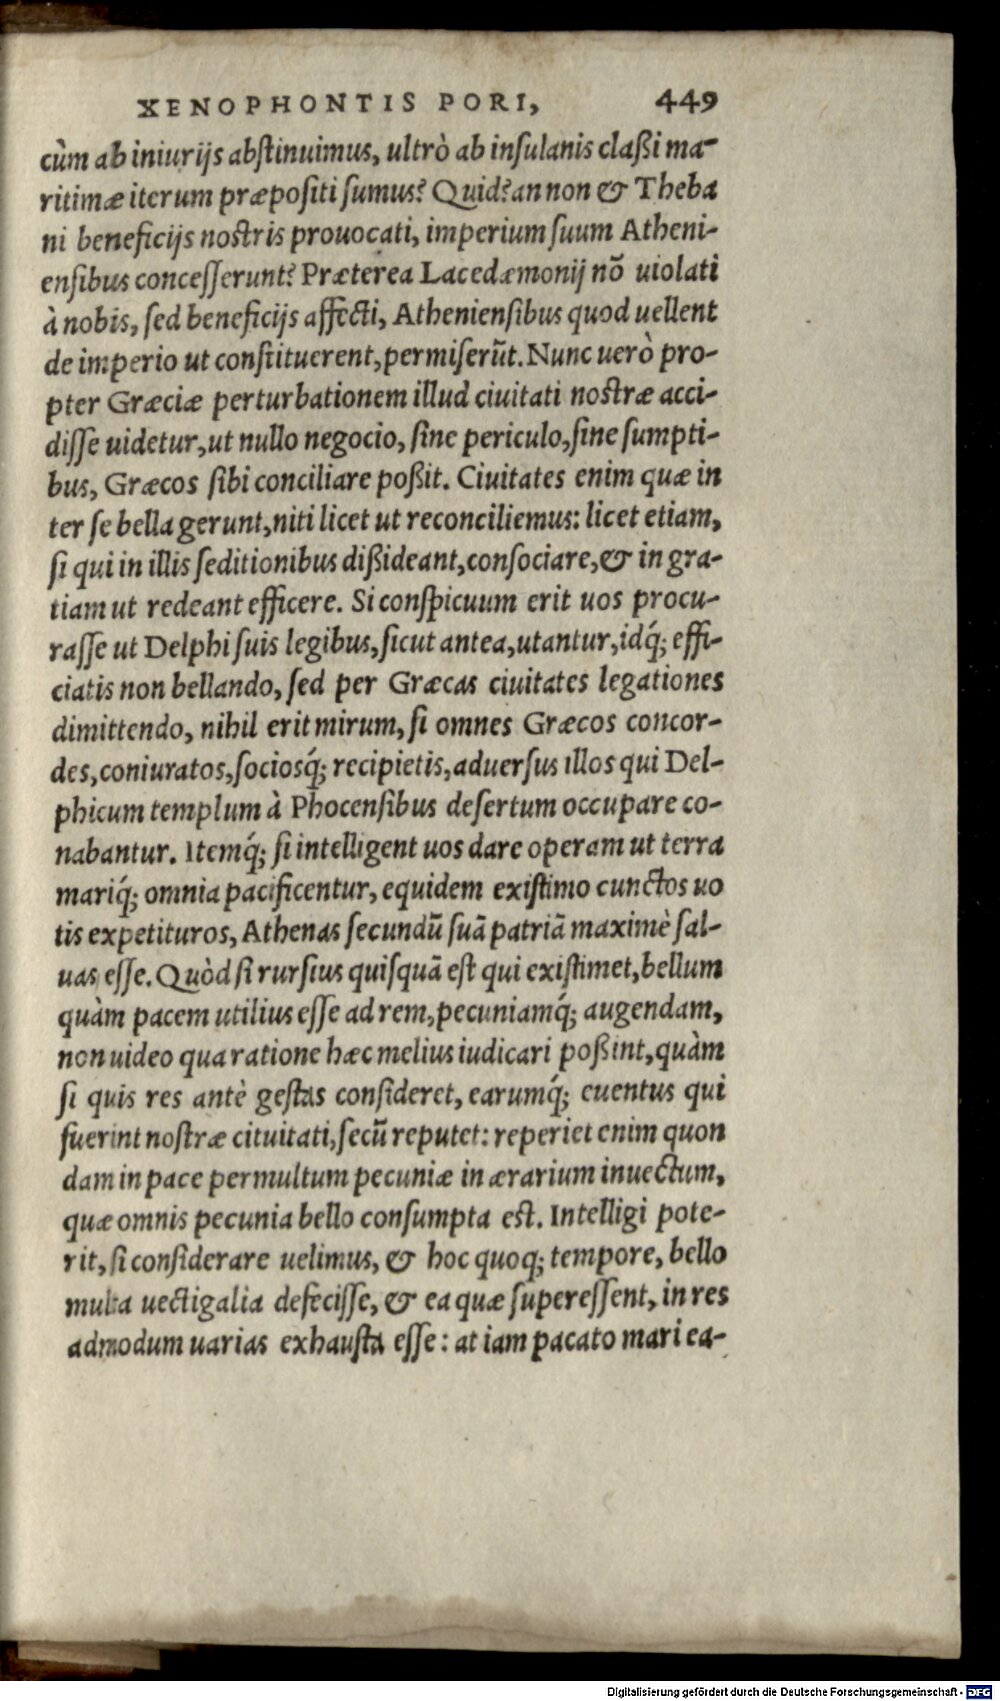 XENOPHONTIS PORI, 449
cùm ab iniurijs abstinuimus, ultrò ab insulanis claßi ma-
ritimæ iterum præpositi sumus? Quid? an non & Theba
ni beneficijs nostris prouocati, imperium suum Atheni-
ensibus concesserunt? Præterea Lacedæmonij nō uiolati
à nobis, sed beneficijs affecti, Atheniensibus quod uellent
de imperio ut constituerent, permiserūt. Nunc uerò pro-
pter Græciæ perturbationem illud ciuitati nostræ acci-
disse uidetur, ut nullo negocio, sine periculo, sine sumpti-
bus, Græcos sibi conciliare poßit. Ciuitates enim quæ in
ter se bella gerunt, niti licet ut reconciliemus: licet etiam,
si qui in illis seditionibus dißideant, consociare, & in gra-
tiam ut redeant efficere. Si conspicuum erit uos procu-
rasse ut Delphi suis legibus, sicut antea, utantur, idq́; effi-
ciatis non bellando, sed per Græcas ciuitates legationes
dimittendo, nihil erit mirum, si omnes Græcos concor-
des, coniuratos, sociosq́; recipietis, aduersus illos qui Del-
phicum templum à Phocensibus desertum occupare co-
nabantur. Itemq́; si intelligent uos dare operam ut terra
mariq́; omnia pacificentur, equidem existimo cunctos uo
tis expetituros, Athenas secundū suā patriā maximè sal-
uas esse. Quòd si rursius quisquā est qui existimet, bellum
quàm pacem utilius esse ad rem, pecuniamq́; augendam,
non uideo qua ratione hæc melius iudicari poßint, quàm
si quis res antè gestas consideret, earumq́; euentus qui
fuerint nostræ cituitati, secū reputet: reperiet enim quon
dam in pace permultum pecuniæ in ærarium inuectum,
quæ omnis pecunia bello consumpta est. Intelligi pote-
rit, si considerare uelimus, & hoc quoq; tempore, bello
multa uectigalia defecisse, & ea quæ superessent, in res
admodum uarias exhausta esse: at iam pacato mari ea-
Digitalisierung gefördert durch die Deutsche Forschungsgemeinschaft - DFG